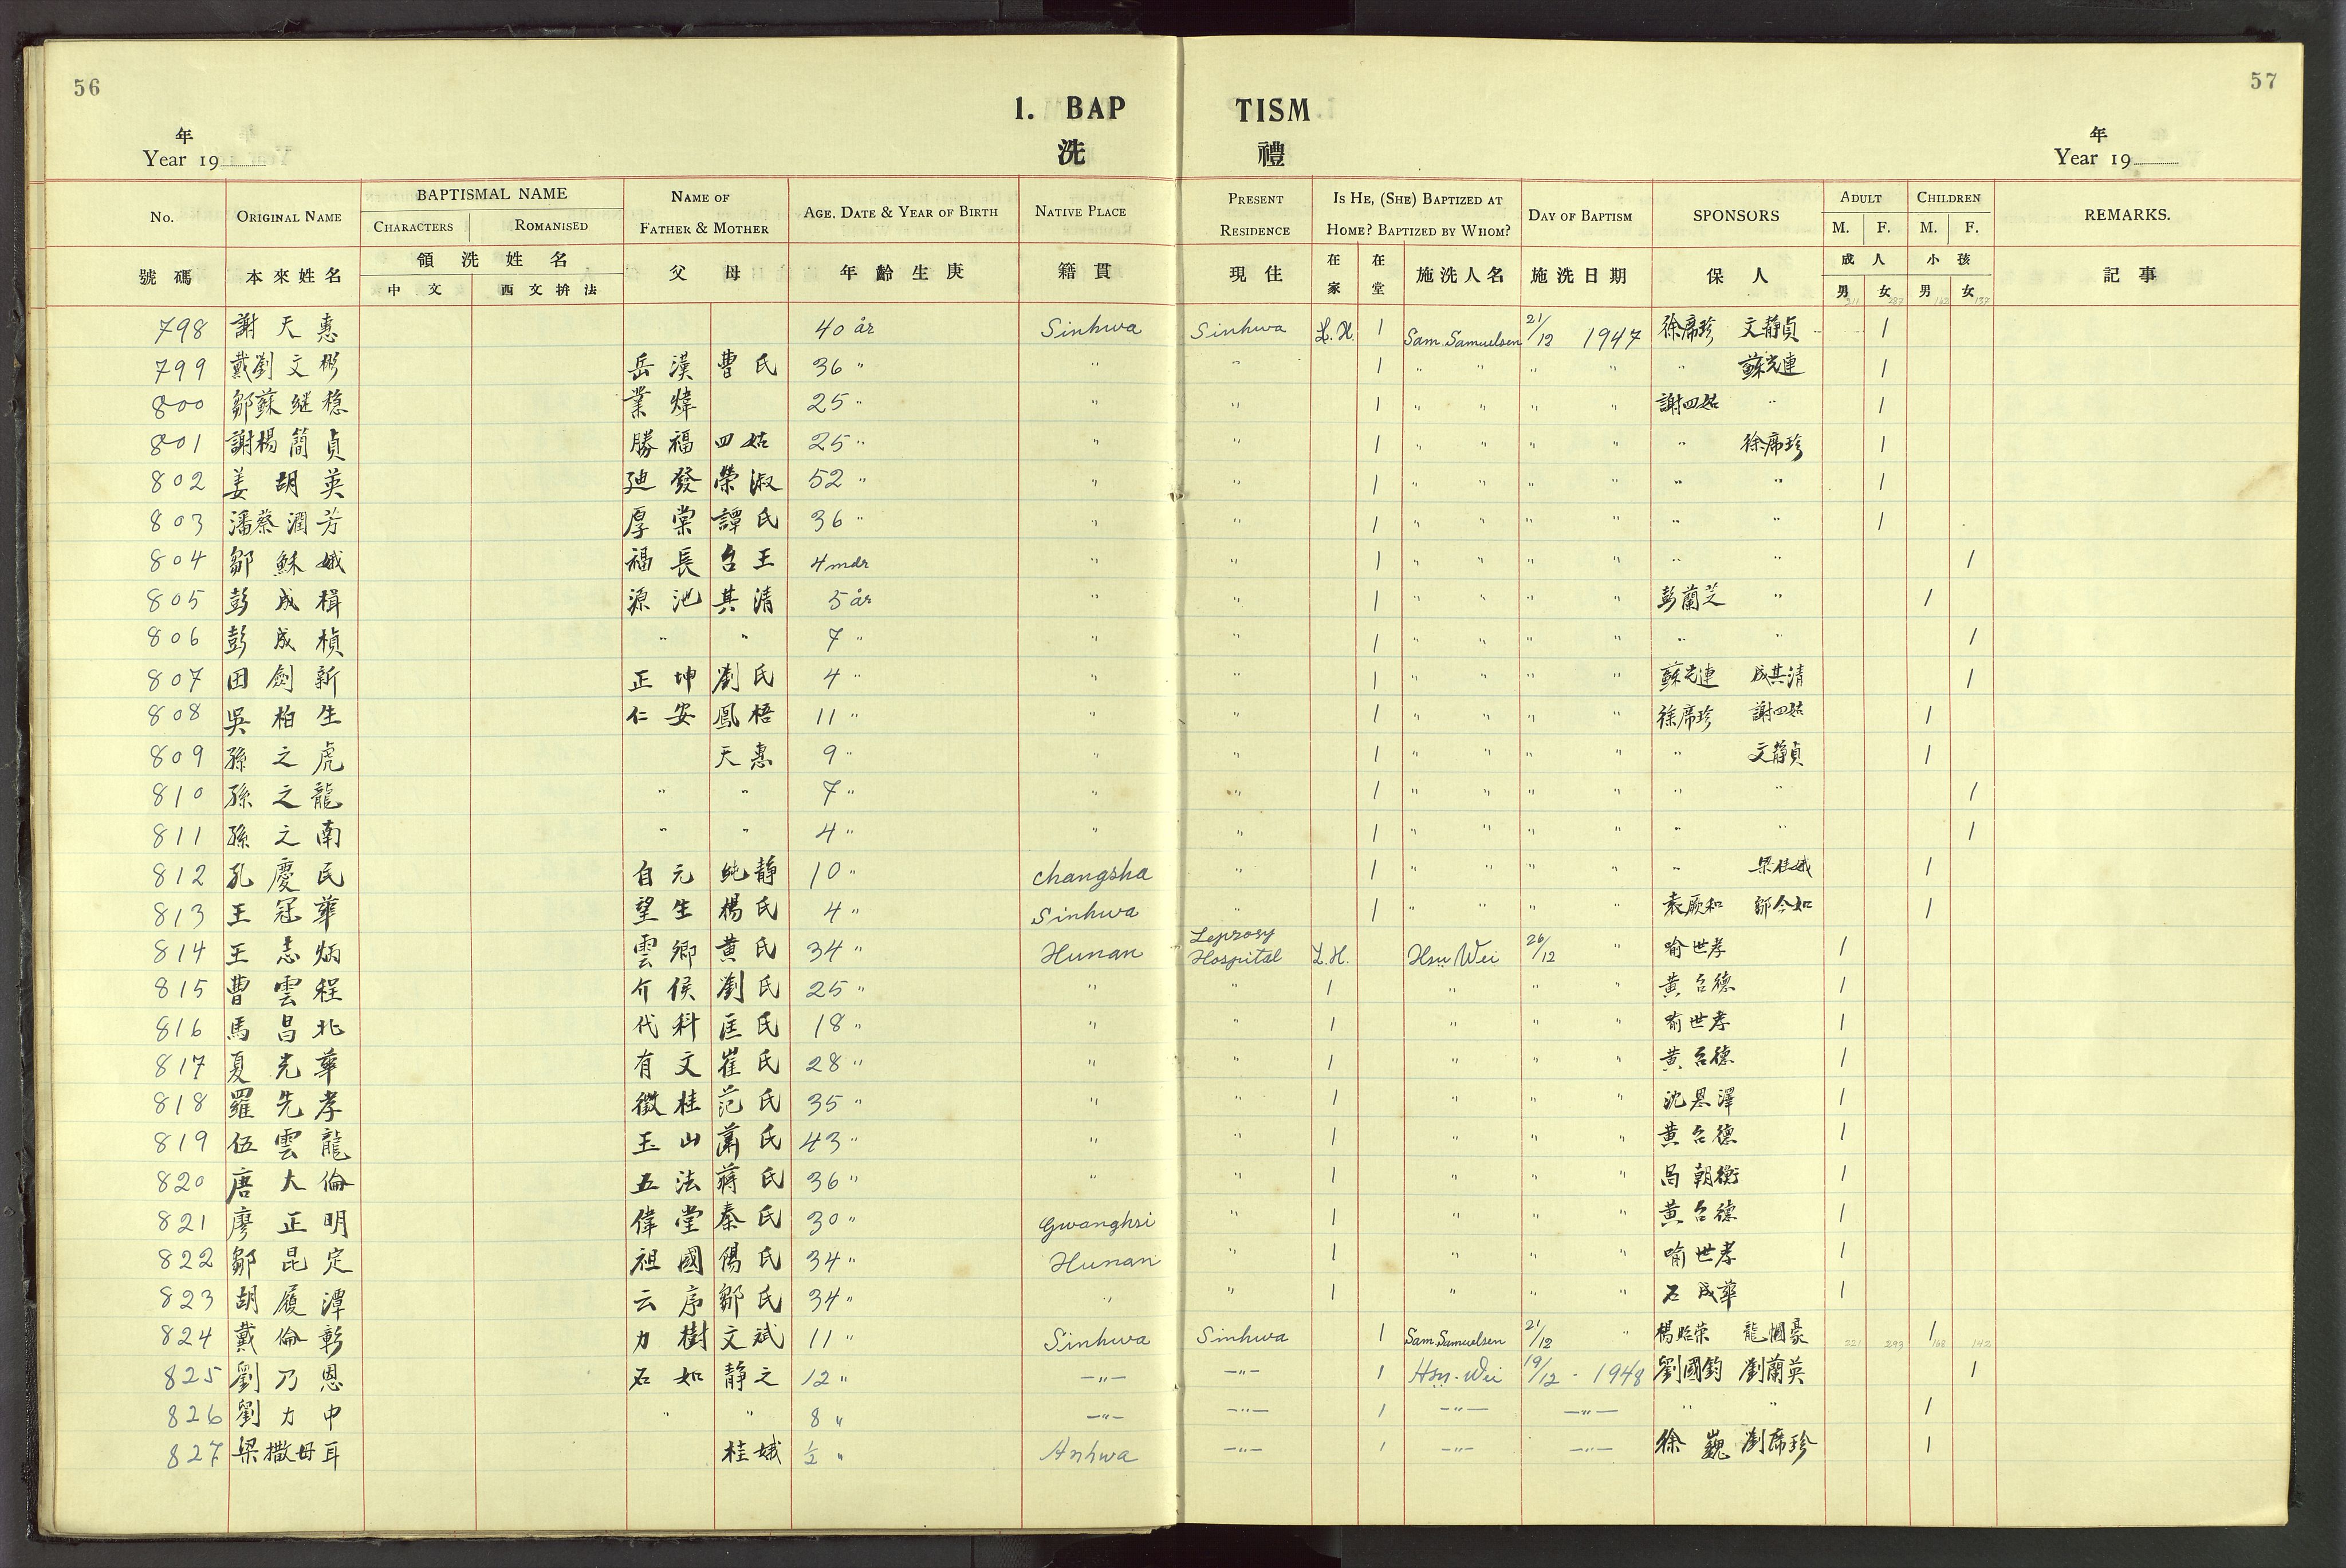 56
57
1. BAP TISM
洗 禮
年
Year 19
年
Year 19
No. ORIGINAL NAME BAPTISMAL NAME NAME OF FATHER & MOTHER AGE, DATE & YEAR OF BIRTH NATIVE PLACE PRESENT RESIDENCE IS HE, (SHE) BAPTIZED AT HOME? BAPTIZED BY WHOM? DAY OF BAPTISM SPONSORS ADULT CHILDREN REMARKS.
CHARACTERS ROMANISED M. F. M. F.
號碼 本來姓名 領洗姓名 父 母 年齡生庚 籍貫 現住 在家 在堂 施洗人名 施洗日期 保人 成人 小孩 記事
中文 西文拚法 男 女 男 女
798 謝天惠 40 år Sinhwa Sinhwa L.H. 1 Sam. Samuelsen 21/12 1947 徐席珍 文静貞 1
799 戴劉文彬 岳漢 曹氏 36 " " " 1 " " " " " 蘇光連 1
800 鄒蘇継穏 業煒 25 " " " 1 " " " " 謝四姑 " 1
801 謝楊簡貞 勝福 四姑 25 " " " 1 " " " " " 徐席珍 1
802 姜胡英 廸發 榮淑 52 " " " 1 " " " " " " 1
803 潘蔡潤芳 厚棠 譚氏 36 " " " 1 " " " " " " 1
804 鄒穌娥 福長 台王 4 mdr " " 1 " " " " " " 1
805 彭成楫 源池 其清 5 år " " 1 " " " " 彭蘭芝 " 1
806 彭成楨 " " 7 " " " 1 " " " " " " 1
807 田劍新 正坤 劉氏 4 " " " 1 " " " " 蘇光連 成其清 1
808 吳柏生 仁安 鳳梧 11 " " " 1 " " " " 徐席珍 謝四姑 1
809 孫之虎 天惠 9 " " " 1 " " " " " 文静貞 1
810 孫之龍 " " 7 " " " 1 " " " " " " 1
811 孫之南 " " 4 " " " 1 " " " " " " 1
812 孔慶民 自元 純静 10 " Changsha " 1 " " " " " 梁桂娥 1
813 王冠華 望生 楊氏 4 " Sinhwa " 1 " " " " 袁厥和 鄒今如 1
814 王志炳 雲卿 黄氏 34 " Hunan Leprosy Hospital L.H. Hsu Wei 26/12 " 喻世孝 1
815 曹雲程 介侯 劉氏 25 " " " 1 " " " 黄台德 1
816 馬昌北 代科 匡氏 18 " " " 1 " " " 喻世孝 1
817 夏光華 有文 崔氏 28 " " " 1 " " " 黄台德 1
818 羅先孝 徵桂 范氏 35 " " " 1 " " " 沈恩澤 1
819 伍雲龍 玉山 蕭氏 43 " " " 1 " " " 黄台德 1
820 唐大倫 五法 蒋氏 36 " " " 1 " " " 呂朝衡 1
821 廖正明 偉堂 秦氏 30 " Gwanghsi " 1 " " " 黄台德 1
822 鄒昆定 祖國 陽氏 34 " Hunan " 1 " " " 喻世孝 1
823 胡履潭 云序 鄒氏 34 " " " 1 " " " 石成華 1
824 戴倫彰 力樹 文斌 11 " Sinhwa Sinhwa 1 Sam. Samuelsen 21/12 " 楊貽荣 龍國豪 221 293 1 168 142
825 劉乃恩 石如 静之 12 " —"— —"— 1 Hsu. Wei 19/12 - 1948 劉國鈞 劉蘭英 1
826 劉力中 " " 8 " —"— —"— 1 —"— —"— " " 1
827 梁撒母耳 桂娥 ½ " Anhwa —"— 1 —"— —"— 徐巍 劉席珍 1